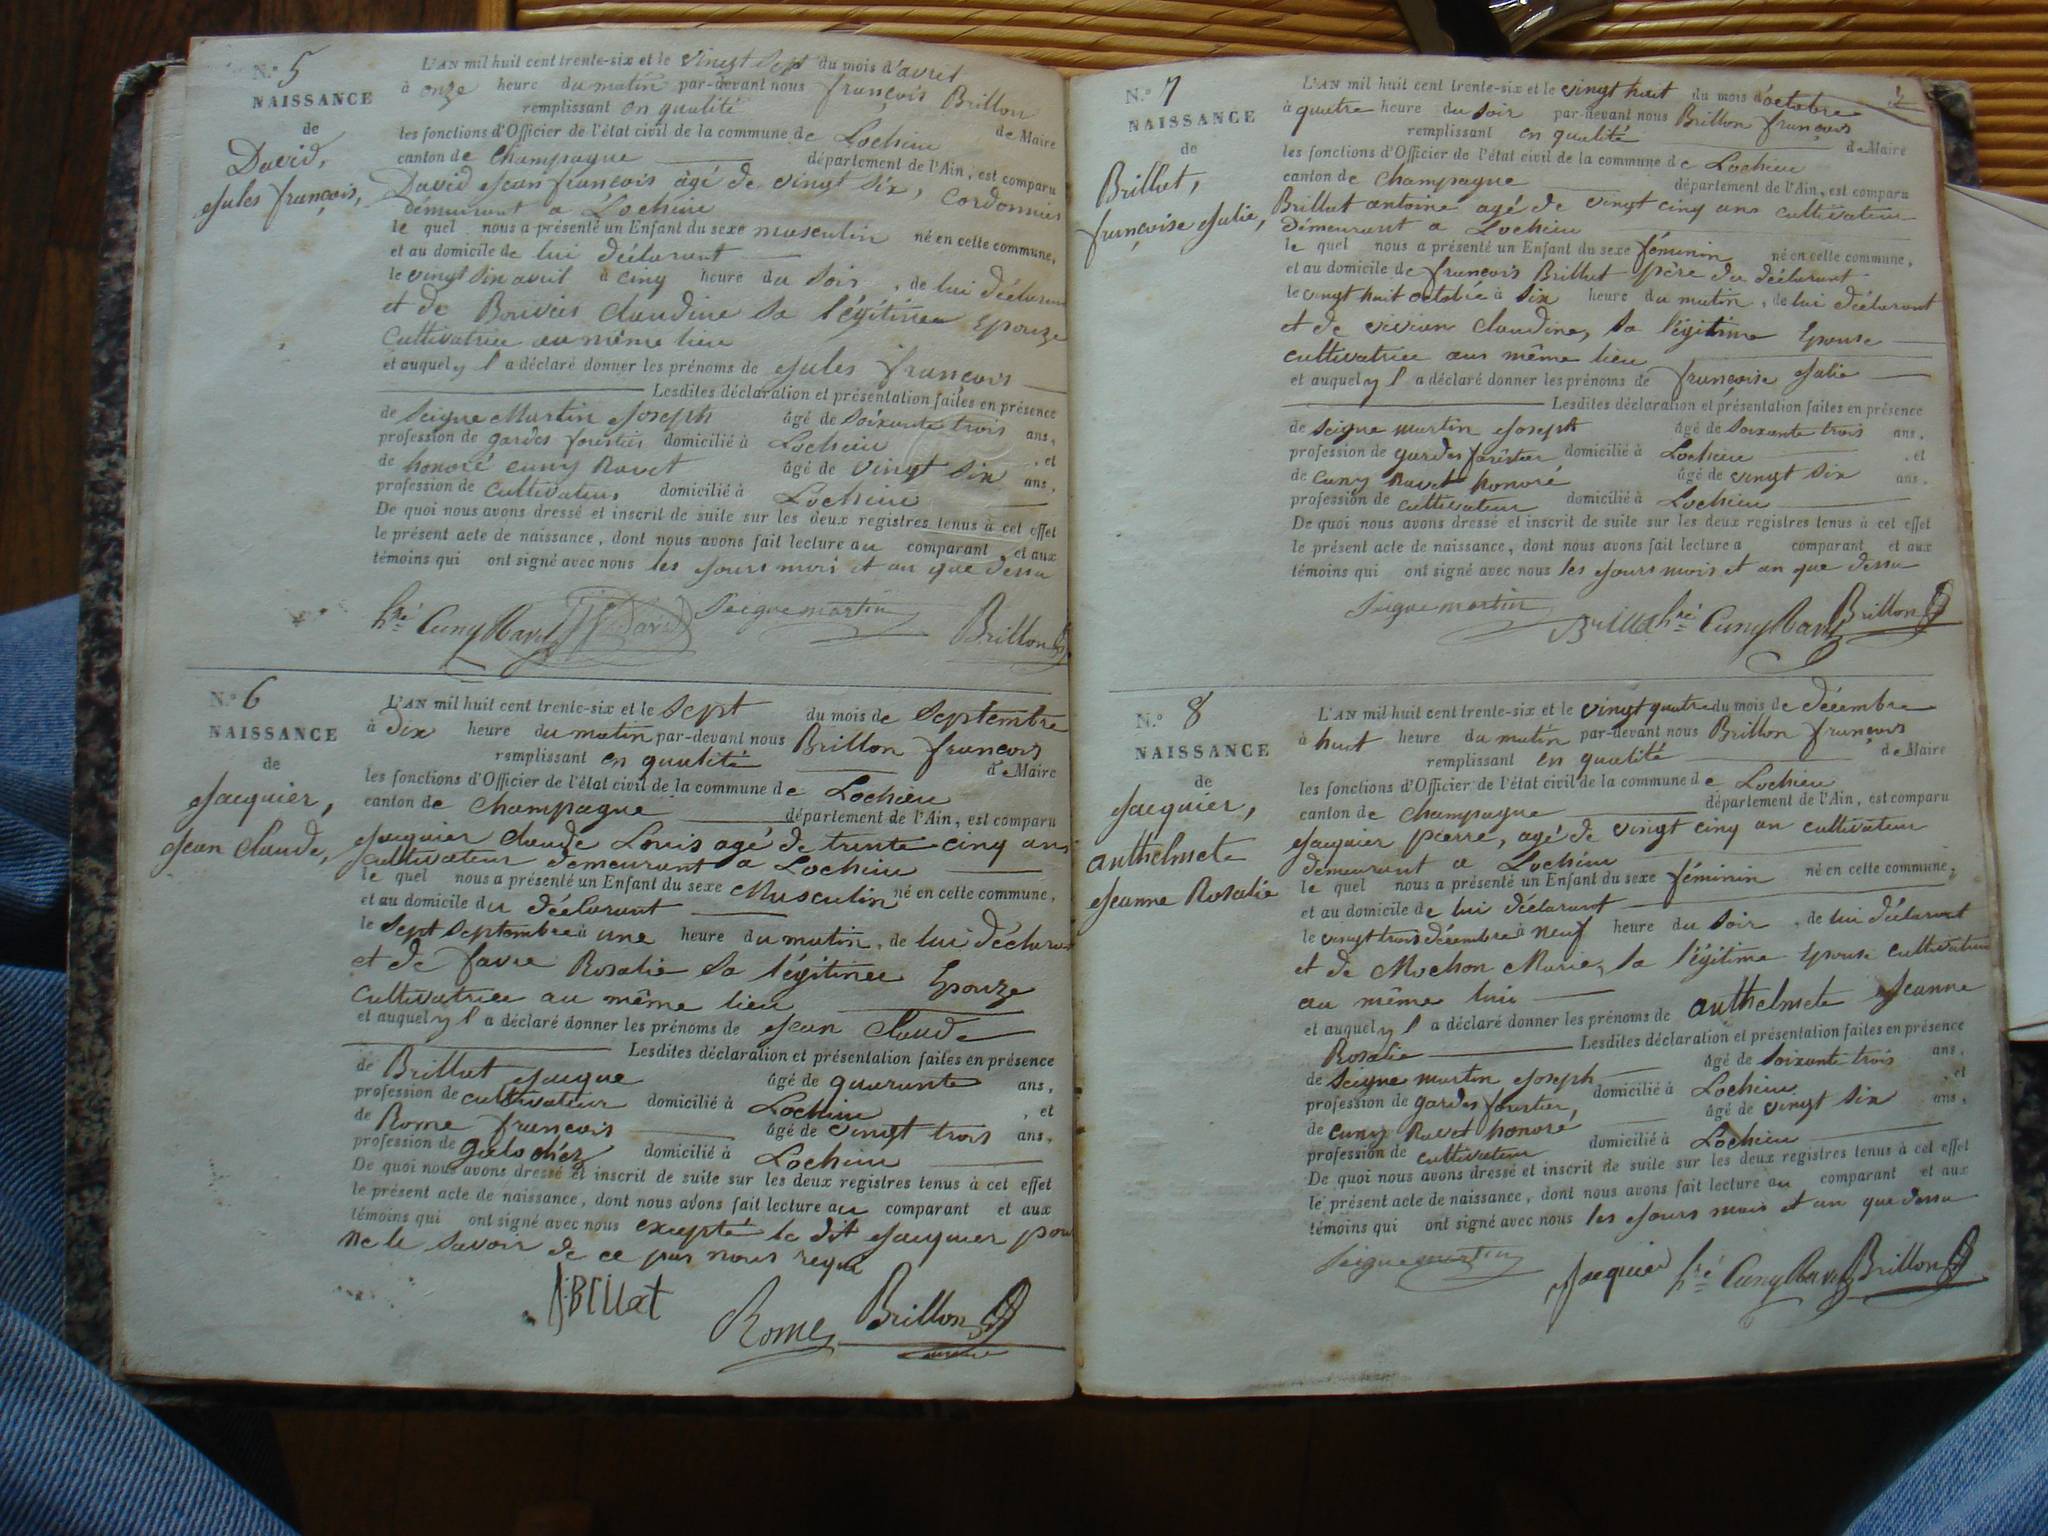 N.º 5
NAISSANCE
de
David,
Jules françois,
L'AN mil huit cent trente-six et le vingt sept du mois d'avril
à onze heure du matin par-devant nous françois Brillon
remplissant en qualité de Maire
les fonctions d'Officier de l'état civil de la commune de Lochieu
canton de Champagne département de l'Ain, est comparu
David Jean françois âgé de vingt six, Cordonnier
démeurant a Lochieu
le quel nous a présenté un Enfant du sexe masculin né en cette commune,
et au domicile de lui déclarant
le vingt six avril à cinq heure du soir, de lui déclarant
et de Bouvier Claudine sa légitime Epouze
Cultivatrice au même lieu
et auquel y l a déclaré donner les prénoms de Jules françois
Lesdites déclaration et présentation faites en présence
de Seigne Martin Joseph âgé de soixante trois ans,
profession de gardes forestier domicilié à Lochieu, et
de honoré Cuny Ravet âgé de vingt six ans,
profession de Cultivateur domicilié à Lochieu
De quoi nous avons dressé et inscrit de suite sur les deux registres tenus à cet effet
le présent acte de naissance, dont nous avons fait lecture au comparant, et aux
témoins qui ont signé avec nous les jours mois et an que dessu
hré Cuny Ravet David Seignemartin Brillon
N.º 6
NAISSANCE
de
Jacquier,
Jean Claude,
L'AN mil huit cent trente-six et le sept du mois de septembre
à dix heure du matin par-devant nous Brillon françois
remplissant en qualité d Maire
les fonctions d'Officier de l'état civil de la commune de Lochieu
canton de Champagne département de l'Ain, est comparu
Jacquier Claude Louis agé de trente cinq ans
Cultivateur demeurant a Lochieu
le quel nous a présenté un Enfant du sexe Musculin né en cette commune,
et au domicile du déclarant
le sept septembre à une heure du matin, de lui déclarant
et de favre Rosalie sa légitime Epouze
Cultivatrice au même lieu
et auquel y l a déclaré donner les prénoms de Jean Claude
Lesdites déclaration et présentation faites en présence
de Brillat Jacque âgé de quarante ans,
profession de cultivateur domicilié à Lochieu, et
de Rome françois âgé de vingt trois ans,
profession de galochéz domicilié à Lochieu
De quoi nous avons dressé et inscrit de suite sur les deux registres tenus à cet effet
le présent acte de naissance, dont nous avons fait lecture au comparant et aux
témoins qui ont signé avec nous excepté le dit Jacquier pour
ne le savoir de ce par nous requi
Brillat
Rome Brillon
N.º 7
NAISSANCE
de
Brillat,
françoise Julie,
L'AN mil huit cent trente-six et le vingt huit du mois d'octobre
à quatre heure du soir par-devant nous Brillon françois
remplissant en qualité de Maire
les fonctions d'Officier de l'état civil de la commune de Lochieu
canton de Champagne département de l'Ain, est comparu
Brillat antoine agé de vingt cinq ans cultivateur
Démeurant a Lochieu
le quel nous a présenté un Enfant du sexe féminin né en cette commune,
et au domicile de françois Brillat père du déclarant
le vingt huit octobre à six heure du matin, de lui déclarant
et de vivian Claudine, sa légitime Epouse
cultivatrice aus même lieu
et auquel y l a déclaré donner les prénoms de françoise Julie
Lesdites déclaration et présentation faites en présence
de Seigne martin Joseph âgé de soixante trois ans,
profession de gardes forêstier domicilié à Lochieu, et
de Cuny Ravet honoré âgé de vingt six ans,
profession de cultivateur domicilié à Lochieu
De quoi nous avons dressé et inscrit de suite sur les deux registres tenus à cet effet
le présent acte de naissance, dont nous avons fait lecture a comparant et aux
témoins qui ont signé avec nous les jours mois et an que dessu
Seignemartin Brillat hré Cuny Ravet Brillon
N.º 8
NAISSANCE
de
Jacquier,
anthelmete
Jeanne Rosalie
L'AN mil huit cent trente-six et le vingt quatre du mois de décembre
à huit heure du matin par-devant nous Brillon françois
remplissant en qualité de Maire
les fonctions d'Officier de l'état civil de la commune de Lochieu
canton de Champagne département de l'Ain, est comparu
Jacquier pierre, agé de vingt cinq an cultivateur
demeurant a Lochieu
le quel nous a présenté un Enfant du sexe féminin né en cette commune,
et au domicile de lui déclarant
le vingt trois décembre à neuf heure du soir, de lui déclarant
et de Mochon Marie, sa légitime Epouse cultivatrice
au même lieu
et auquel y l a déclaré donner les prénoms de anthelmete Jeanne
Rosalie Lesdites déclaration et présentation faites en présence
de Seigne martin Joseph âgé de soixante trois ans,
profession de gardes forestier, domicilié à Lochieu, et
de Cuny Ravet honoré âgé de vingt six ans,
profession de cultivateur domicilié à Lochieu
De quoi nous avons dressé et inscrit de suite sur les deux registres tenus à cet effet
le présent acte de naissance, dont nous avons fait lecture au comparant et aux
témoins qui ont signé avec nous les jours mois et an que dessu
Seignemartin Jacquier hré Cuny Ravet Brillon